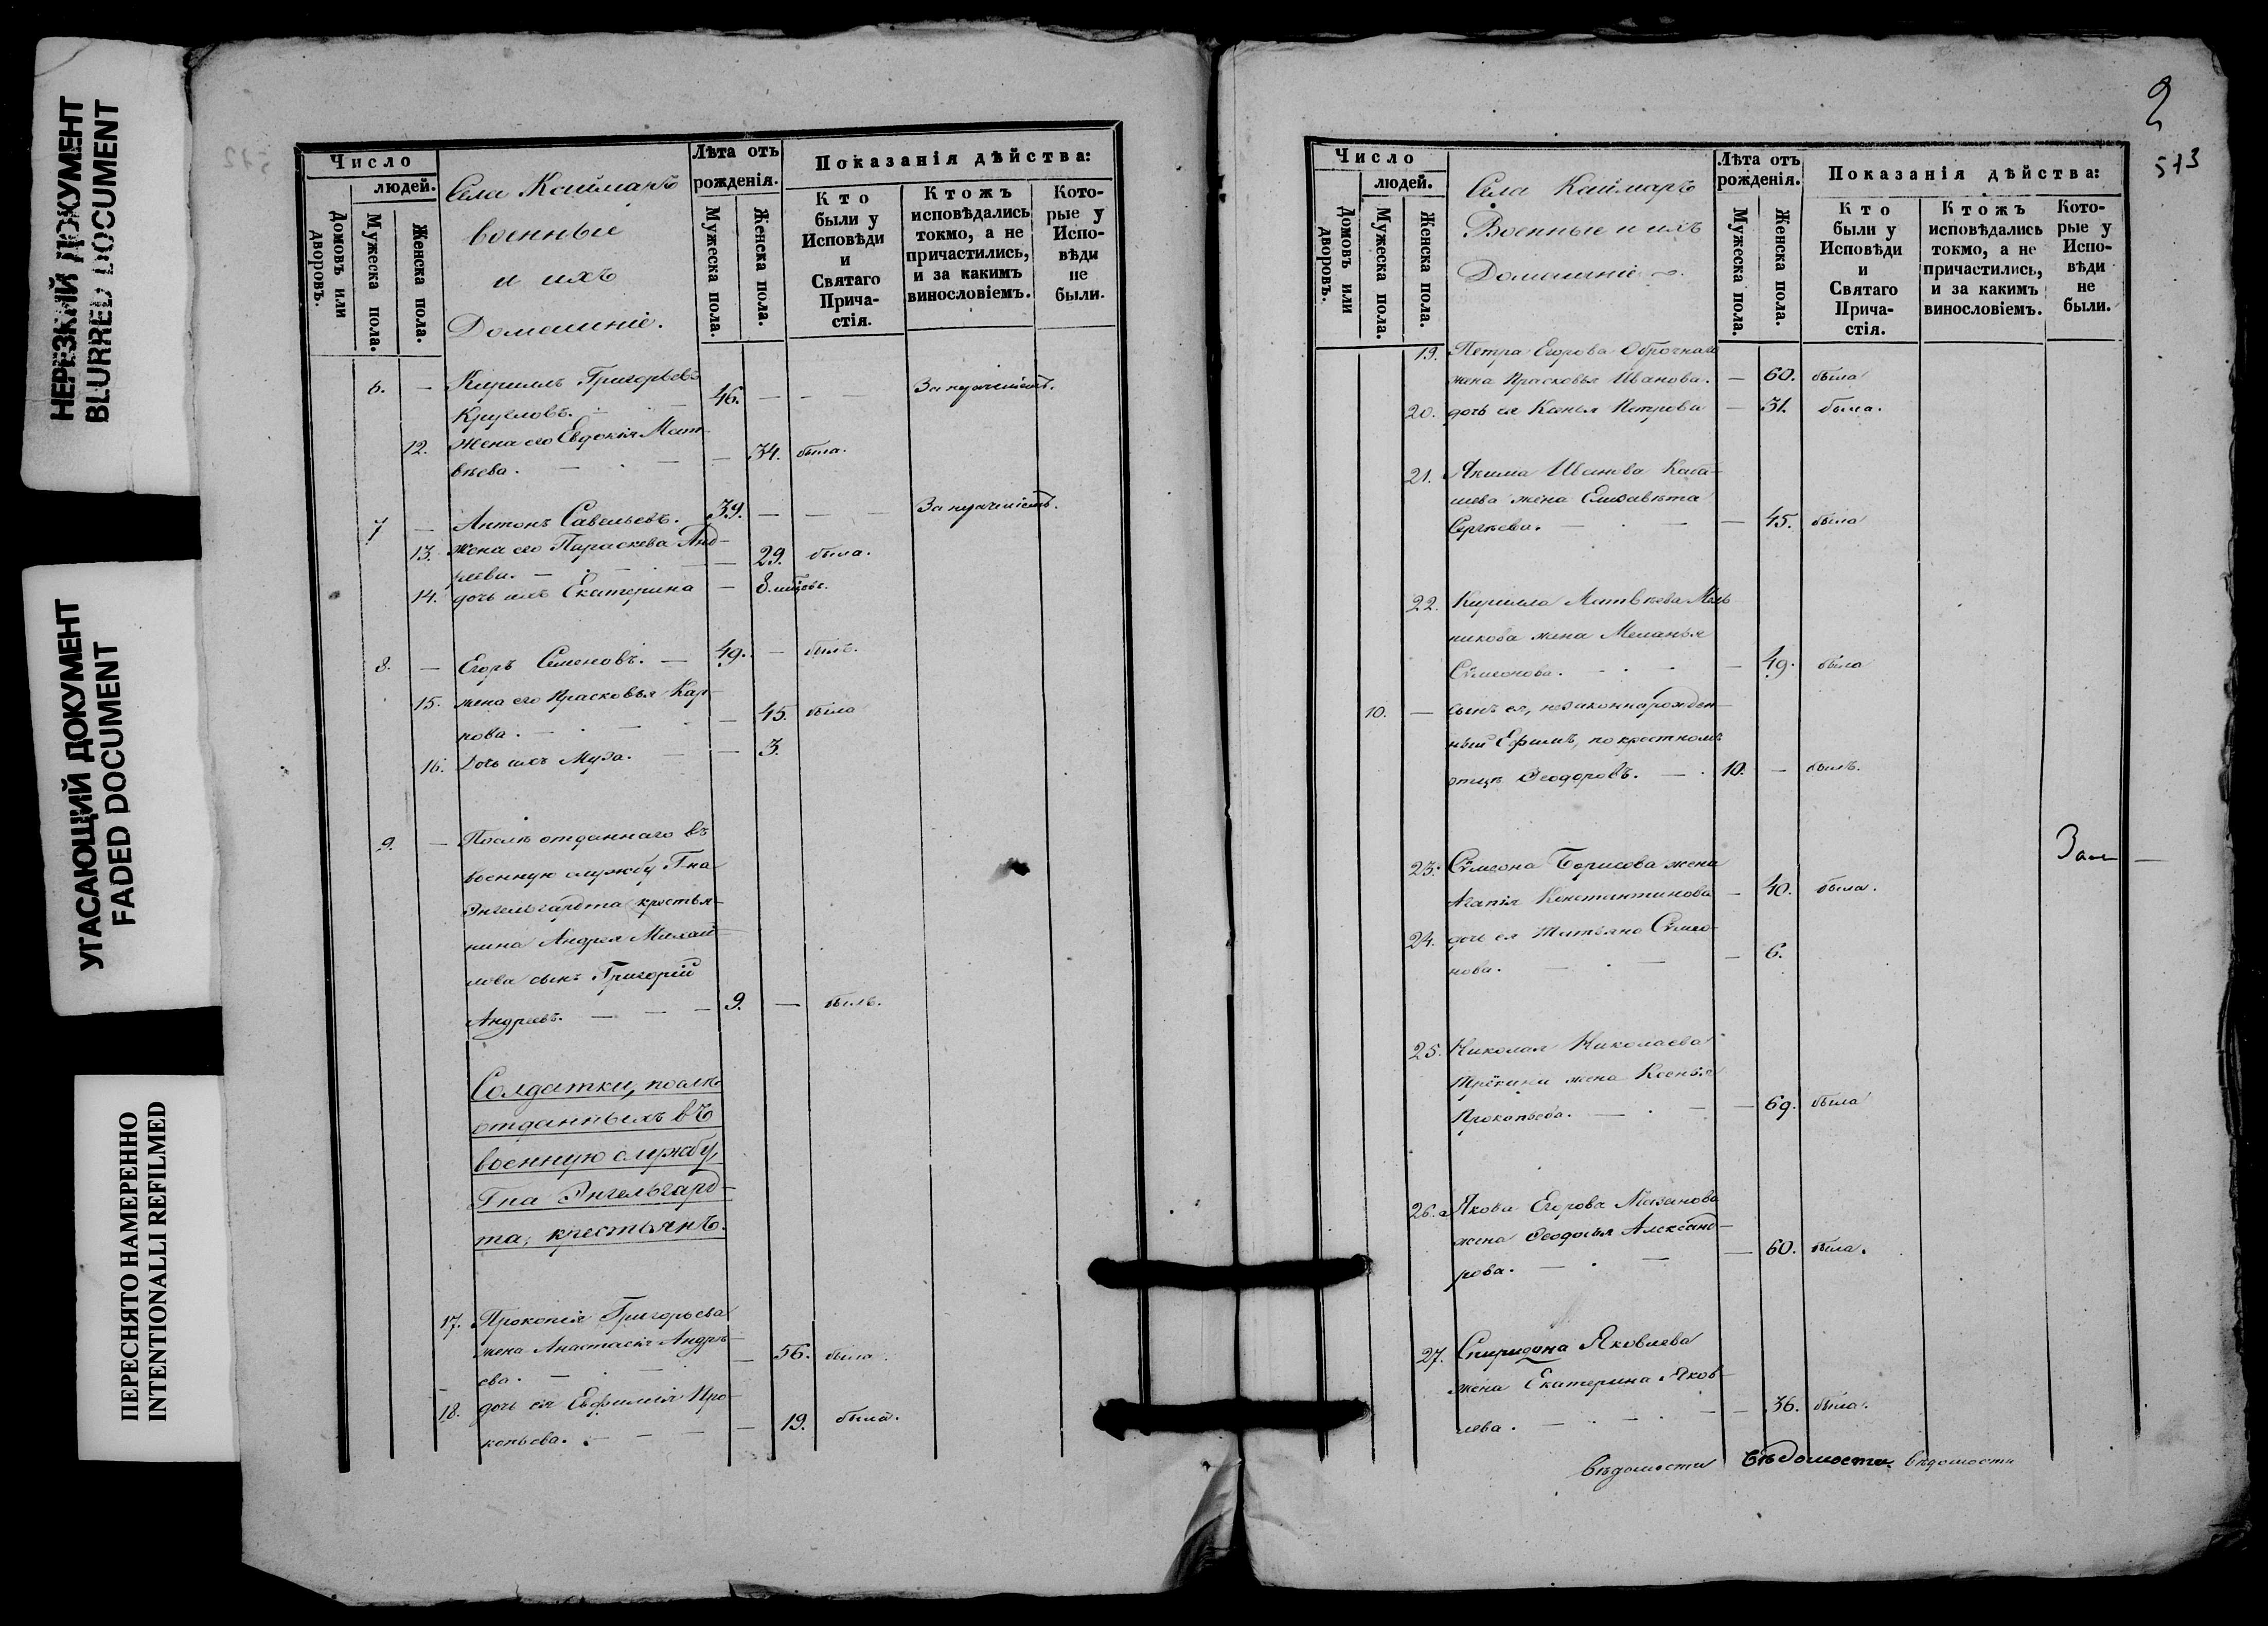 НЕРЕЗКИЙ ДОКУМЕНТ
BLURRED DOCUMENT
УГАСАЮЩИЙ ДОКУМЕНТ
FADED DOCUMENT
ПЕРЕСНЯТО НАМЕРЕННО
INTENTIONALLI REFILMED
Число
людей.
Домовъ или дворовъ.
Мужеска пола.
Женска пола.
Села Каймаръ
военные
и ихъ
Домашніе.
Лѣта отъ
рожденія.
Мужеска пола.
Женска пола.
Показанія дѣйства:
Кто
были у
Исповѣди
и
Святаго
Прича-
стія.
Ктожъ
исповѣдались
токмо, а не
причастились,
и за какимъ
винословіемъ.
Кото-
рые у
Испо-
вѣди
не
были.
6. — Кириллъ Григорьевъ
Кругловъ. — 46. — — —
12. Жена его Евдокія Мат-
вѣева. — 34. была.
7 — Антонъ Савельевъ. 39. — — —
13. жена его Параскева Анд-
реева. — 29. была.
14. дочь ихъ Екатерина — 8. мѣсяцевъ.
8. — Егоръ Семеновъ. — 49. — былъ.
15. жена его Прасковья Кар-
пова. — 45. была
16. Дочь ихъ Муза. — 3.
9. — Послѣ отданнаго въ
военную службу Гна
Энгельгардта крестья-
нина Андрея Михай-
лова сынъ Григорій
Андреевъ. — — — 9. — былъ.
Солдатки, послѣ
отданныхъ въ
военную службу,
Гна Энгельгард-
та, крестьянъ.
17. Прокопія Григорьева
жена Анастасія Андре-
ева. — — 56. была.
18. дочь ея Евфимія Про-
копьева. — — — 19. была.
2
573
Число
людей.
Домовъ или дворовъ.
Мужеска пола.
Женска пола.
Села Каймаръ
Военные и ихъ
Домашніе.
Лѣта отъ
рожденія.
Мужеска пола.
Женска пола.
Показанія дѣйства:
Кто
были у
Исповѣди
и
Святаго
Прича-
стія.
Ктожъ
исповѣдались
токмо, а не
причастились,
и за какимъ
винословіемъ.
Кото-
рые у
Испо-
вѣди
не
были.
19. Петра Егорова Оброчнаго
жена Прасковья Иванова. — 60. была
20. дочь ея Ксенья Петрова — 31. была.
21. Якима Иванова Каба-
шева жена Елизавета
Сергѣева. — — 45. была
22. Кирилла Матвѣева Мель-
никова жена Меланья
Сѵмеонова. — — 49. была
10. — сынъ ея, незаконнорожден-
ный Ефимъ, по крестномъ
отцѣ Ѳеодоровъ. — 10. — былъ.
23. Сѵмеона Борисова жена
Агапія Константинова — 40. была.
24. дочь ея Татьяна Сѵмео-
нова. — — 6.
25. Николая Николаева
жена Ксенья
Прокопьева. — — 69. была
26. Якова Егорова Мазанова
жена Ѳеодосья Александ-
рова. — — 60. была.
27. Спиридона Яковлева
жена Екатерина Яков-
лева. — — 36. была.
вѣдомости вѣдомости вѣдомости